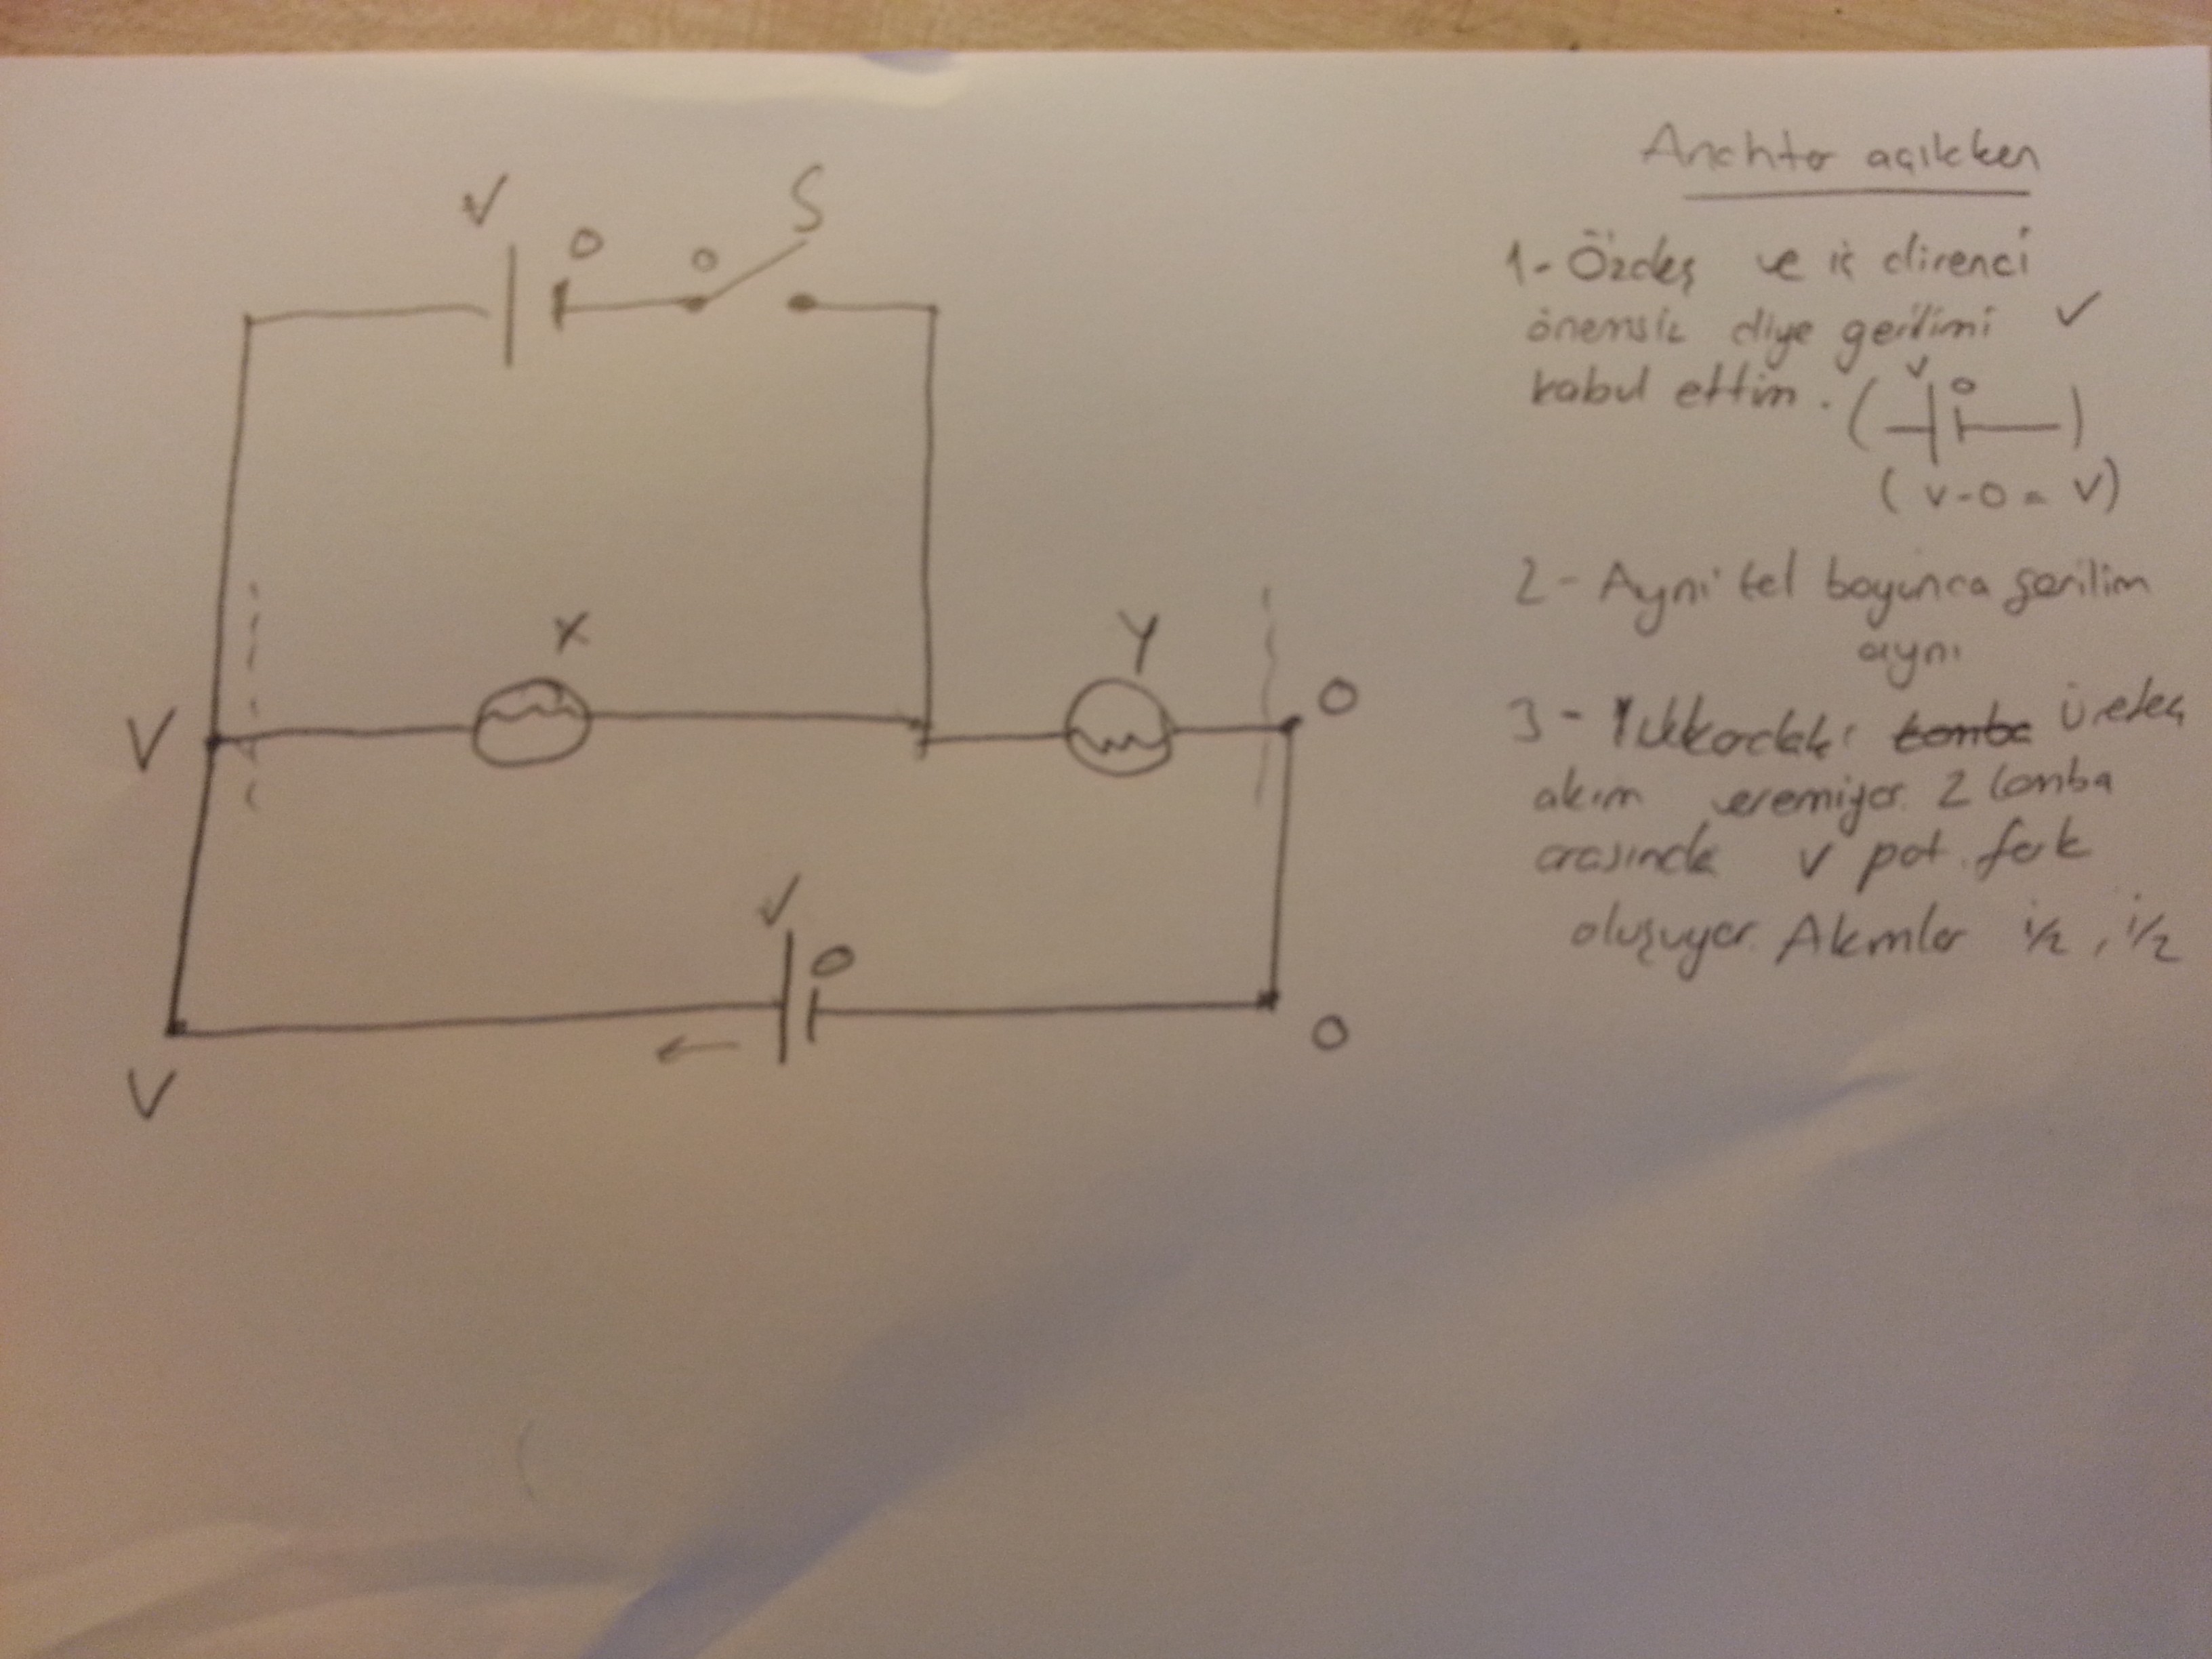 V
S
O
O
X
Y
V
O
V
O
V
O
Anahtar açıkken
1- Özdeş ve iç direnci
önemsiz diye gerilimi V
kabul ettim. ( V O )
( V - O = V )
2- Aynı tel boyunca gerilim
aynı
3- Yukkardaki lamba üreteç
akım veremiyor. 2 lamba
arasında V pot. fark
oluşuyor. Akımlar i/2, i/2